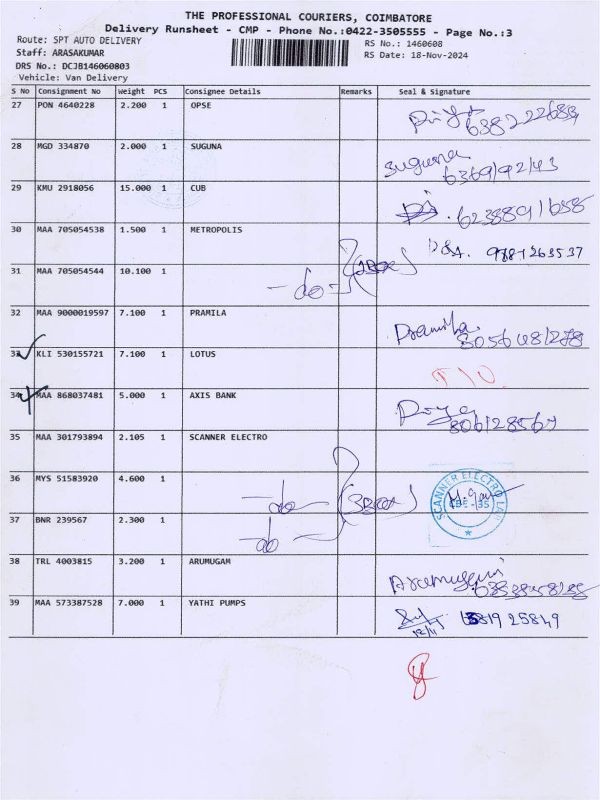 THE PROFESSIONAL COURIERS, COIMBATORE
Delivery Runsheet - CMP - Phone No.:0422-3505555 - Page No.:3
Route: SPT AUTO DELIVERY
RS No.: 1460608
Staff: ARASAKUMAR
RS Date: 18-Nov-2024
DRS No.: DCJB146060803
Vehicle: Van Delivery
S No Consignment No Weight PCS Consignee Details Remarks Seal & Signature
27 PON 4640228 2.200 1 OPSE
28 MGD 334870 2.000 1 SUGUNA Suguna
29 KMU 2918056 15.000 1 CUB
30 MAA 705054538 1.500 1 METROPOLIS
31 MAA 705054544 10.100 1 -do-
32 MAA 9000019597 7.100 1 PRAMILA Pramila
33 KLI 530155721 7.100 1 LOTUS
34 MAA 868037481 5.000 1 AXIS BANK
35 MAA 301793894 2.105 1 SCANNER ELECTRO
36 MYS 51583920 4.600 1 -do-
SCANNER ELECTRO
CBE - 35
37 BNR 239567 2.300 1 -do-
38 TRL 4003815 3.200 1 ARUMUGAM
39 MAA 573387528 7.000 1 YATHI PUMPS